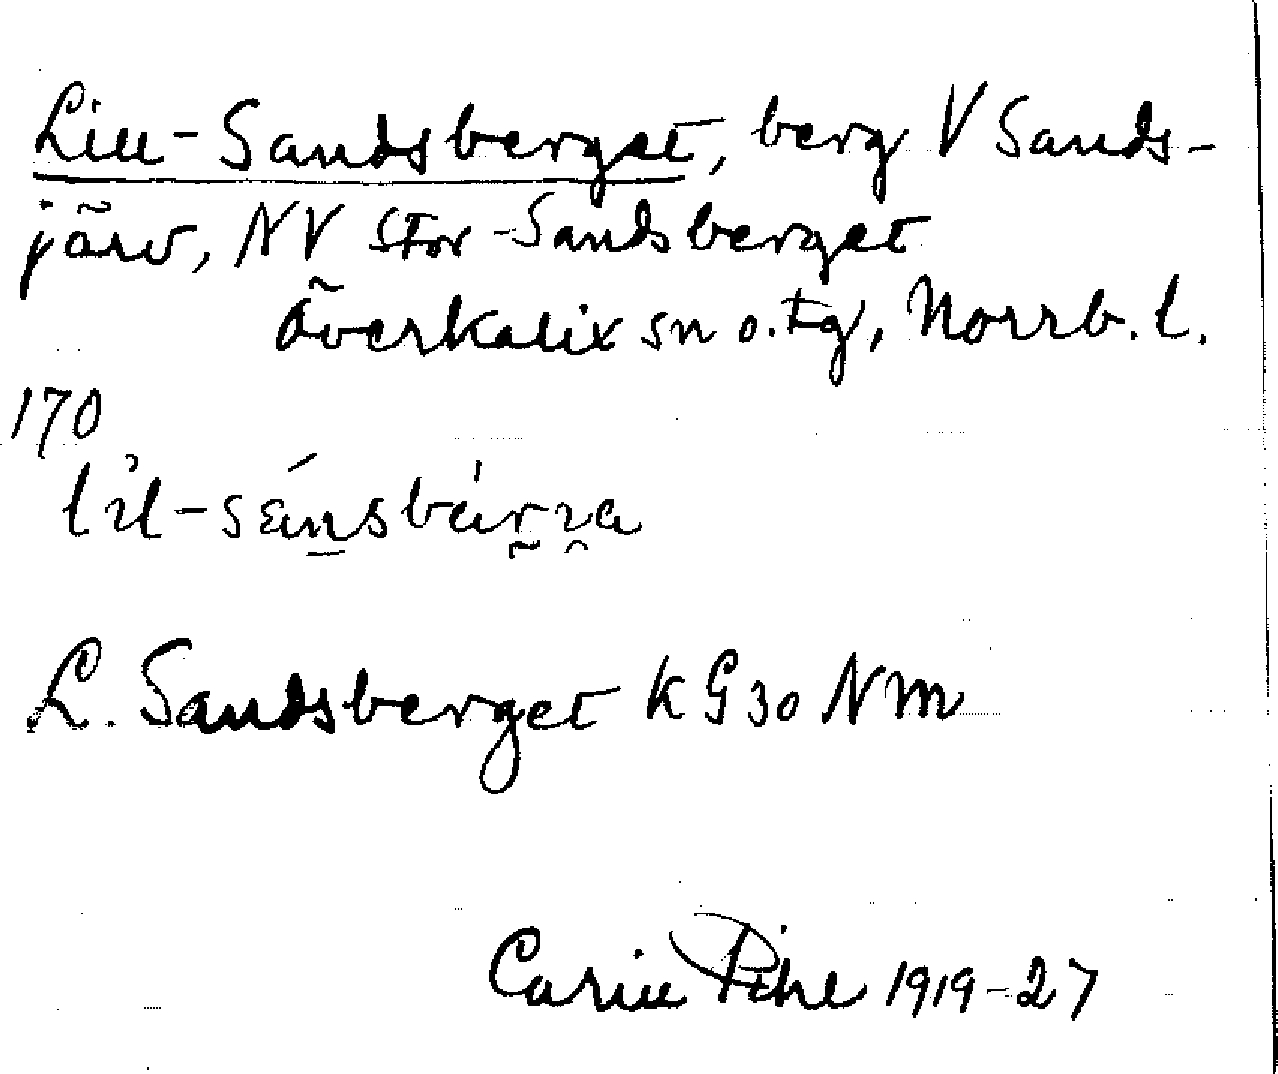 Lill-Sandsberget, berg V Sands-
järv, NV Stor-Sandsberget
Överkalix sn o. tg, Norrb. l.
170
L. Sandsberget KG 30 NM
Carin Pihl 1919-27